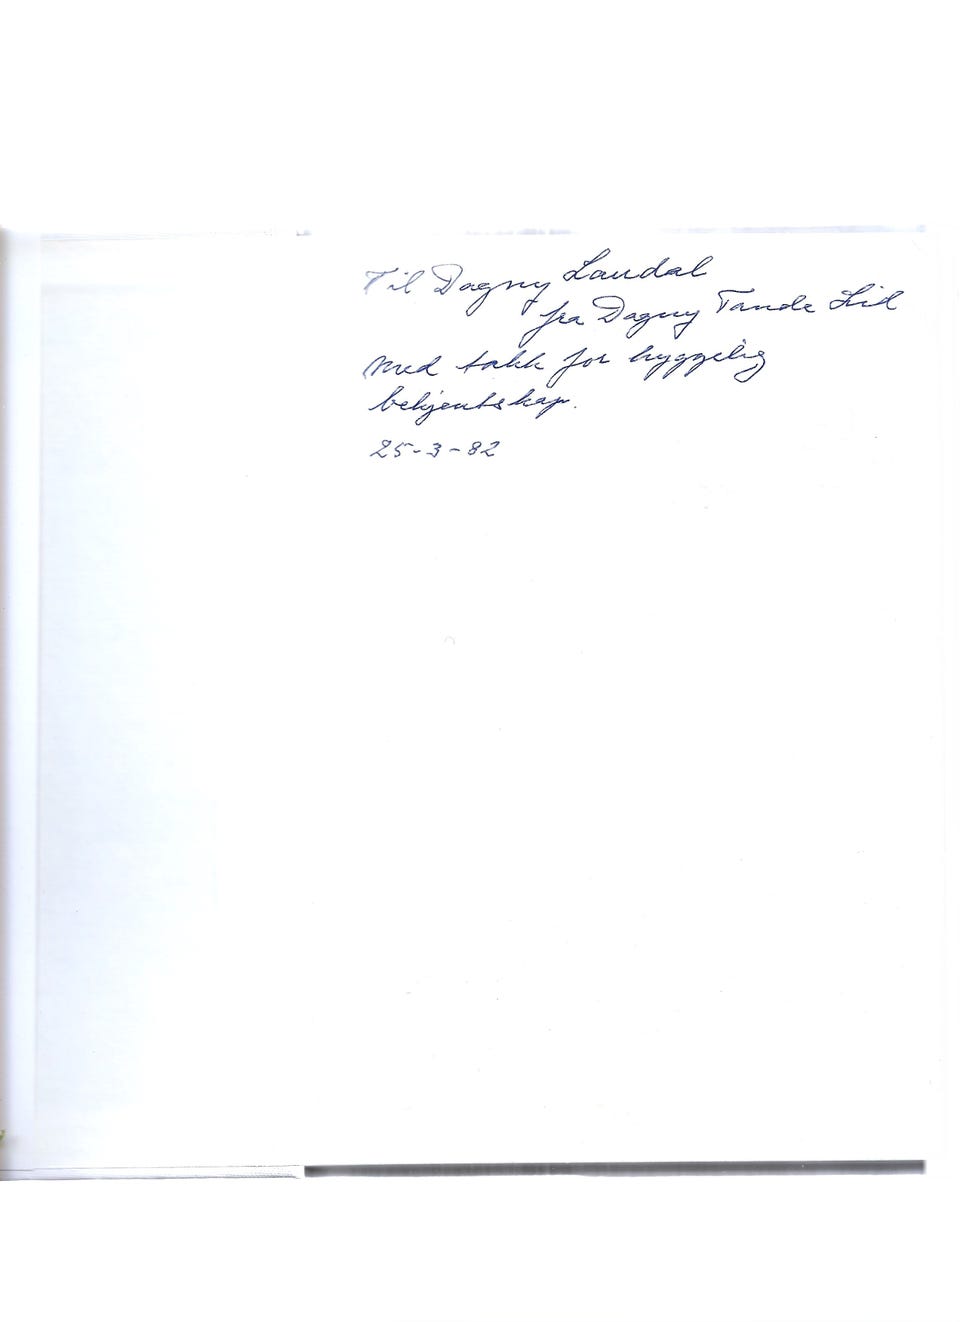 Til Dagny Laudal
fra Dagny Tande Lid
Med takk for hyggelig
bekjentskap.
25-3-82